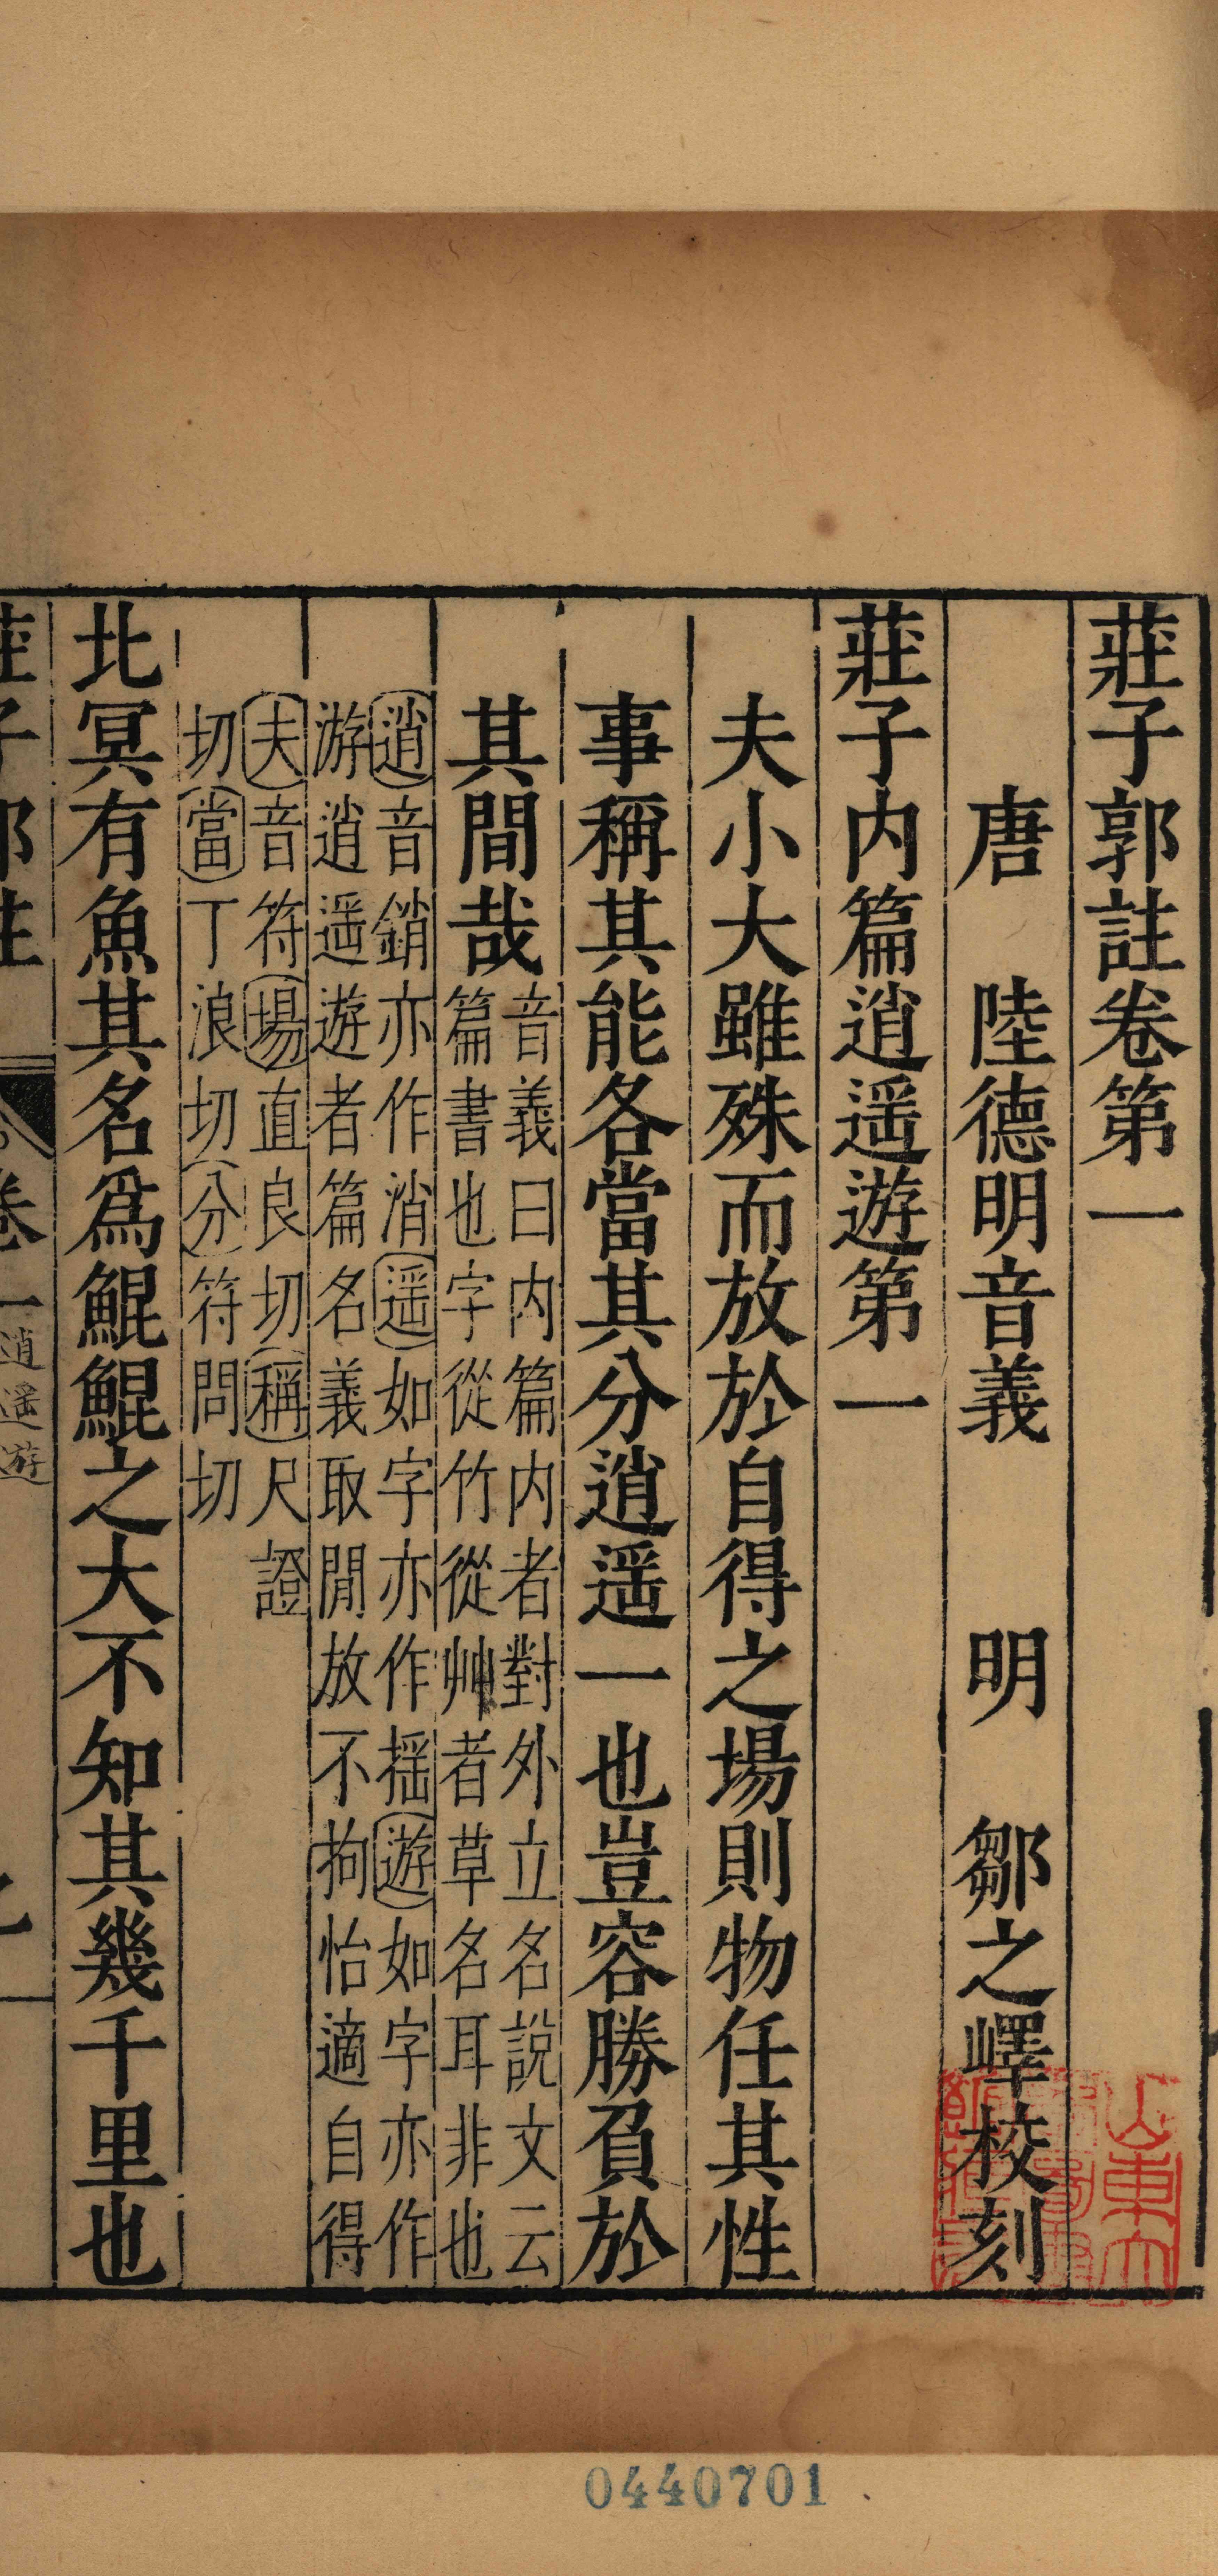 莊子郭註卷第一
唐 陸德明音義 明 鄒之嶧校刻
莊子内篇逍遥遊第一
夫小大雖殊而放於自得之場則物任其性
事稱其能各當其分逍遥一也豈容勝負於
其間哉
音義曰内篇内者對外立名說文云
篇書也字從竹從艸者草名耳非也
逍音銷亦作消遥如字亦作揺遊如字亦作
游逍遥遊者篇名義取閒放不拘怡適自得
夫音符場直良切稱尺證
切當丁浪切分符問切
北冥有魚其名爲鯤鯤之大不知其幾千里也
莊子郭註 卷一 逍遥遊
山東
0440701